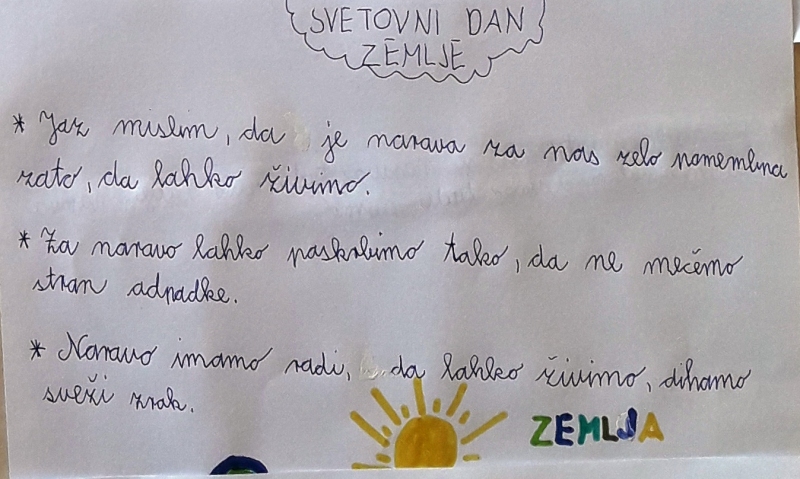 SVETOVNI DAN
ZEMLJE
* Jaz mislim, da je narava za nas zelo pomembna
zato, da lahko živimo.
* Za naravo lahko poskrbimo tako, da ne mečemo
stran odpadke.
* Naravo imamo radi, da lahko živimo, dihamo
sveži zrak.
ZEMLJA